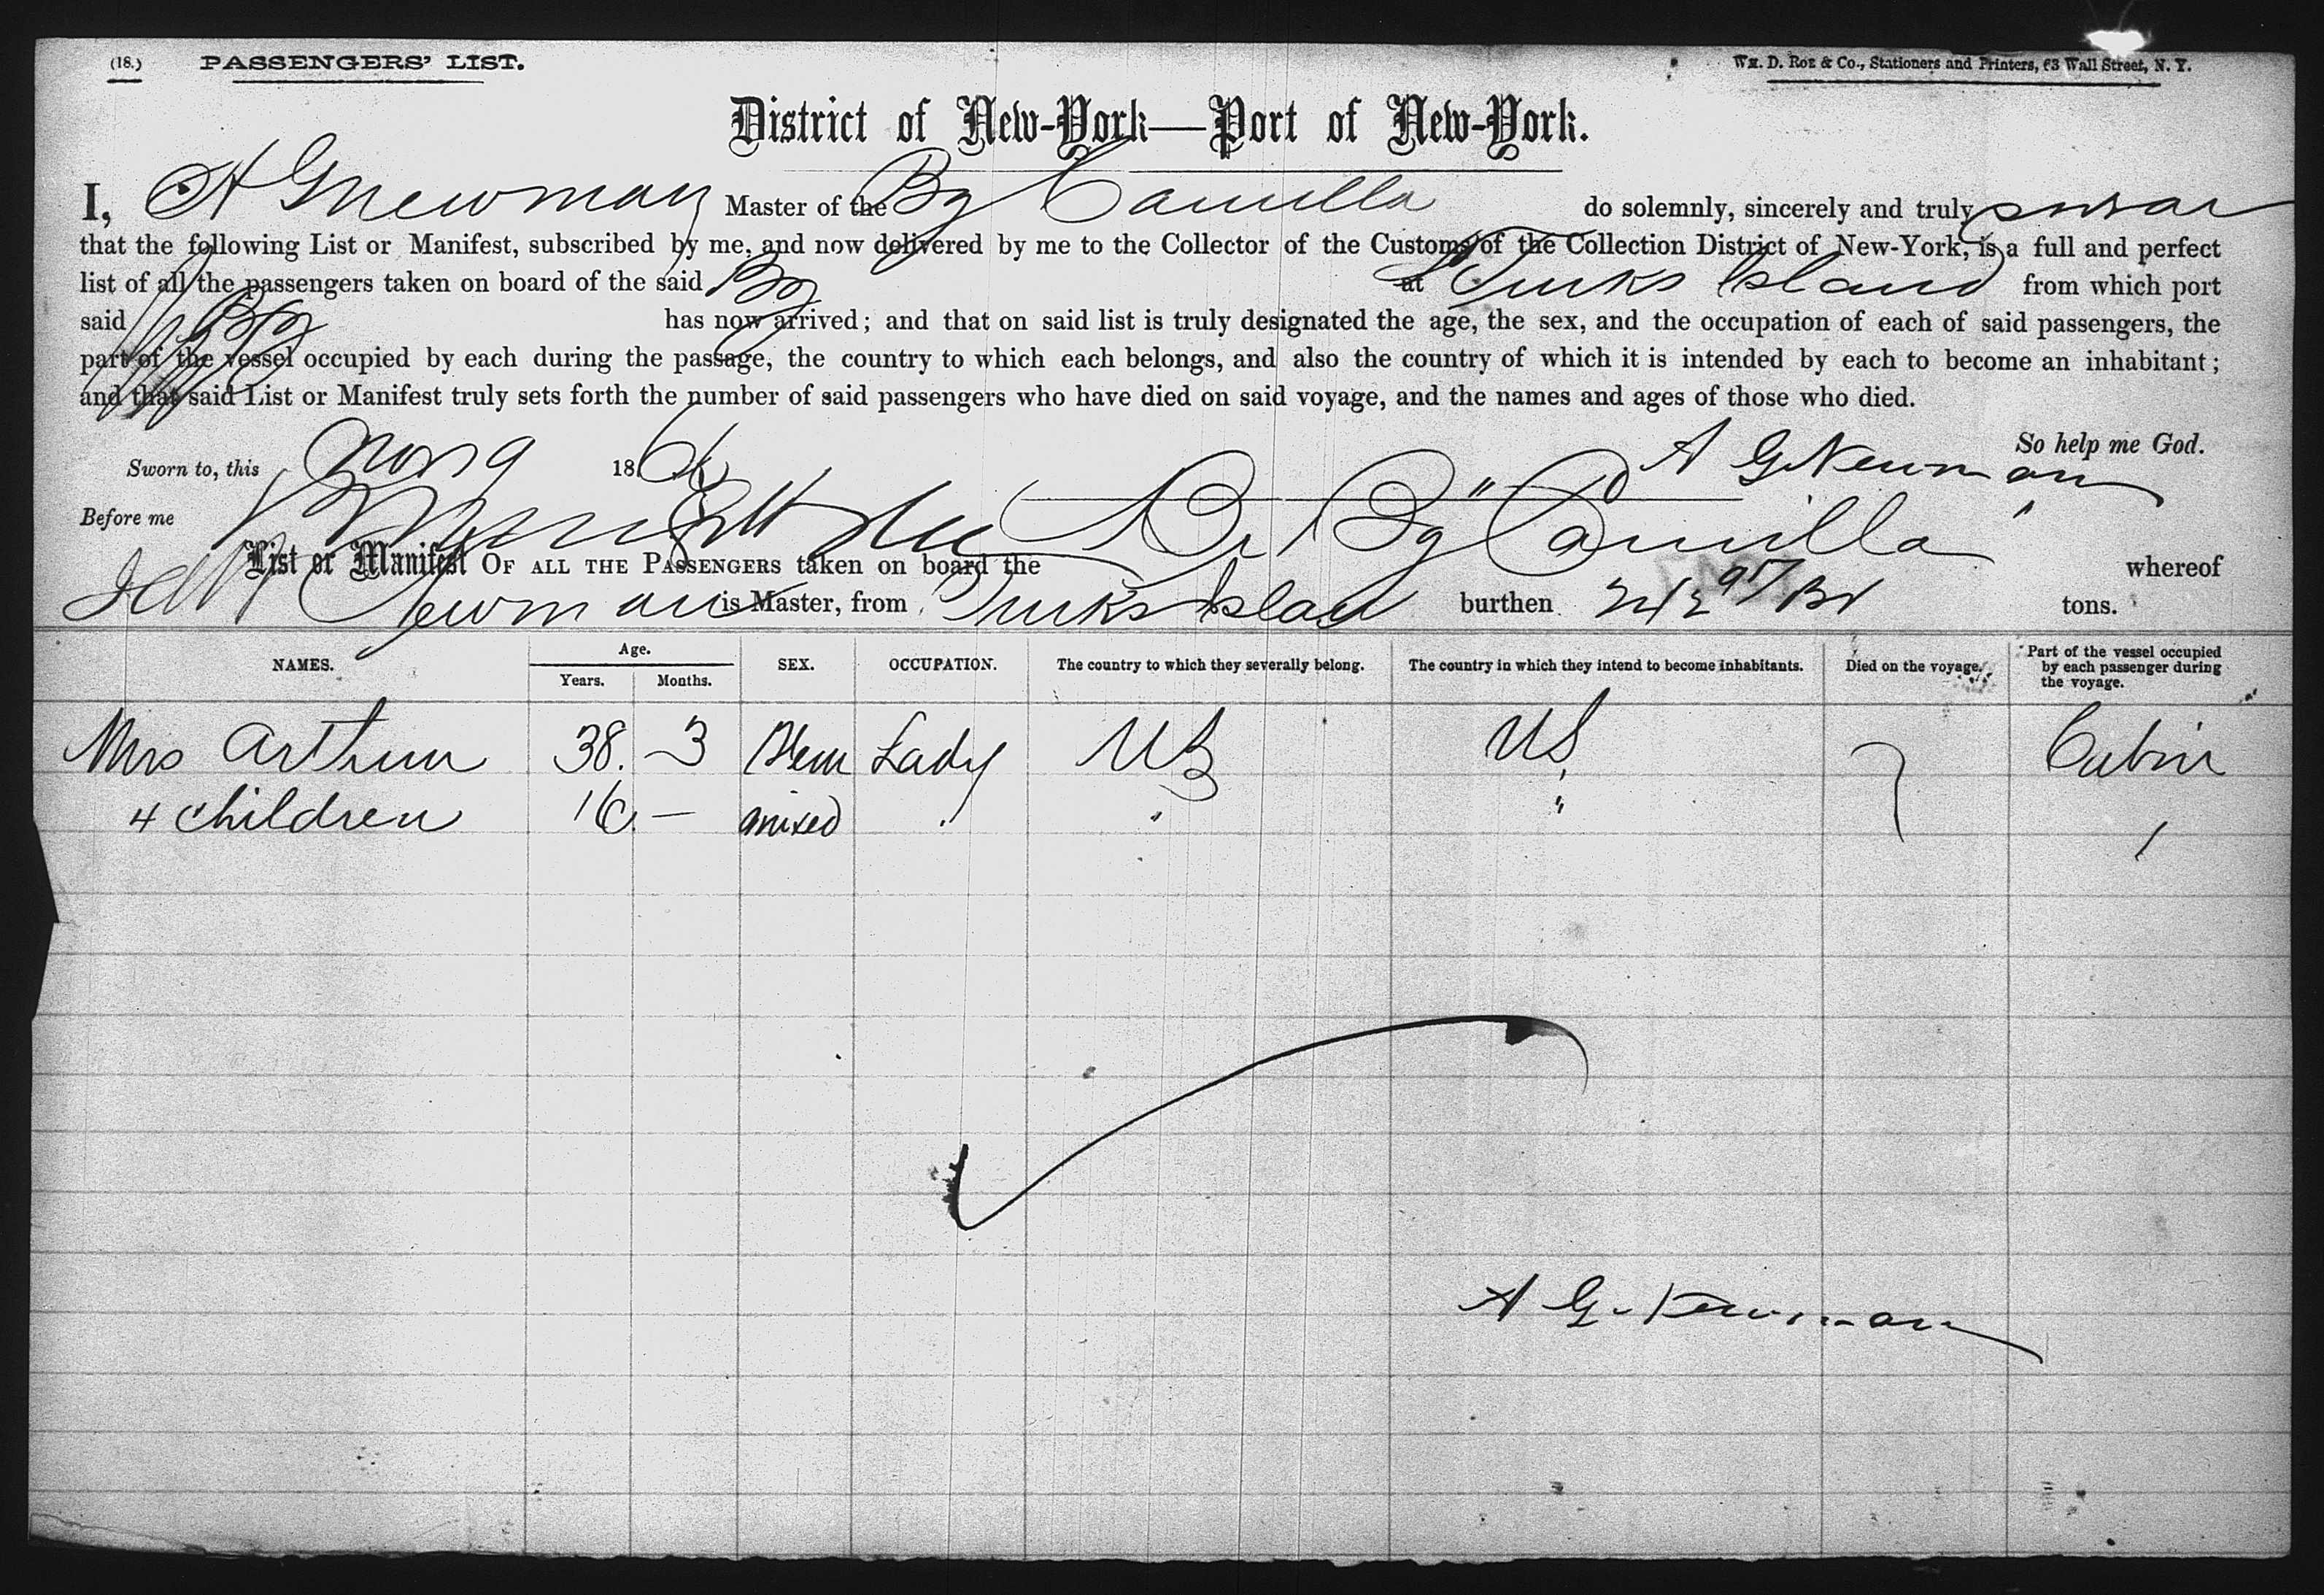 (18.) PASSENGERS' LIST.
Wm. D. Roe & Co., Stationers and Printers, 63 Wall Street, N. Y.
District of New-York—Port of New-York.
I, A G Newman Master of the Bg Camilla do solemnly, sincerely and truly swear
that the following List or Manifest, subscribed by me, and now delivered by me to the Collector of the Customs of the Collection District of New-York, is a full and perfect
list of all the passengers taken on board of the said Bg at Turks Island from which port
said Bg has now arrived; and that on said list is truly designated the age, the sex, and the occupation of each of said passengers, the
part of the vessel occupied by each during the passage, the country to which each belongs, and also the country of which it is intended by each to become an inhabitant;
and that said List or Manifest truly sets forth the number of said passengers who have died on said voyage, and the names and ages of those who died.
So help me God.
Sworn to, this Nov 9 186 A G Newman
Before me
List or Manifest OF ALL THE PASSENGERS taken on board the Br Bg "Camilla" whereof
Newman is Master, from Turks Island burthen tons.
NAMES. Age. Years. Months. SEX. OCCUPATION. The country to which they severally belong. The country in which they intend to become inhabitants. Died on the voyage. Part of the vessel occupied by each passenger during the voyage.
Mrs Arthur 38. 3 Fem Lady US US Cabin
4 children 16. — mixed " " "
A G. Newman